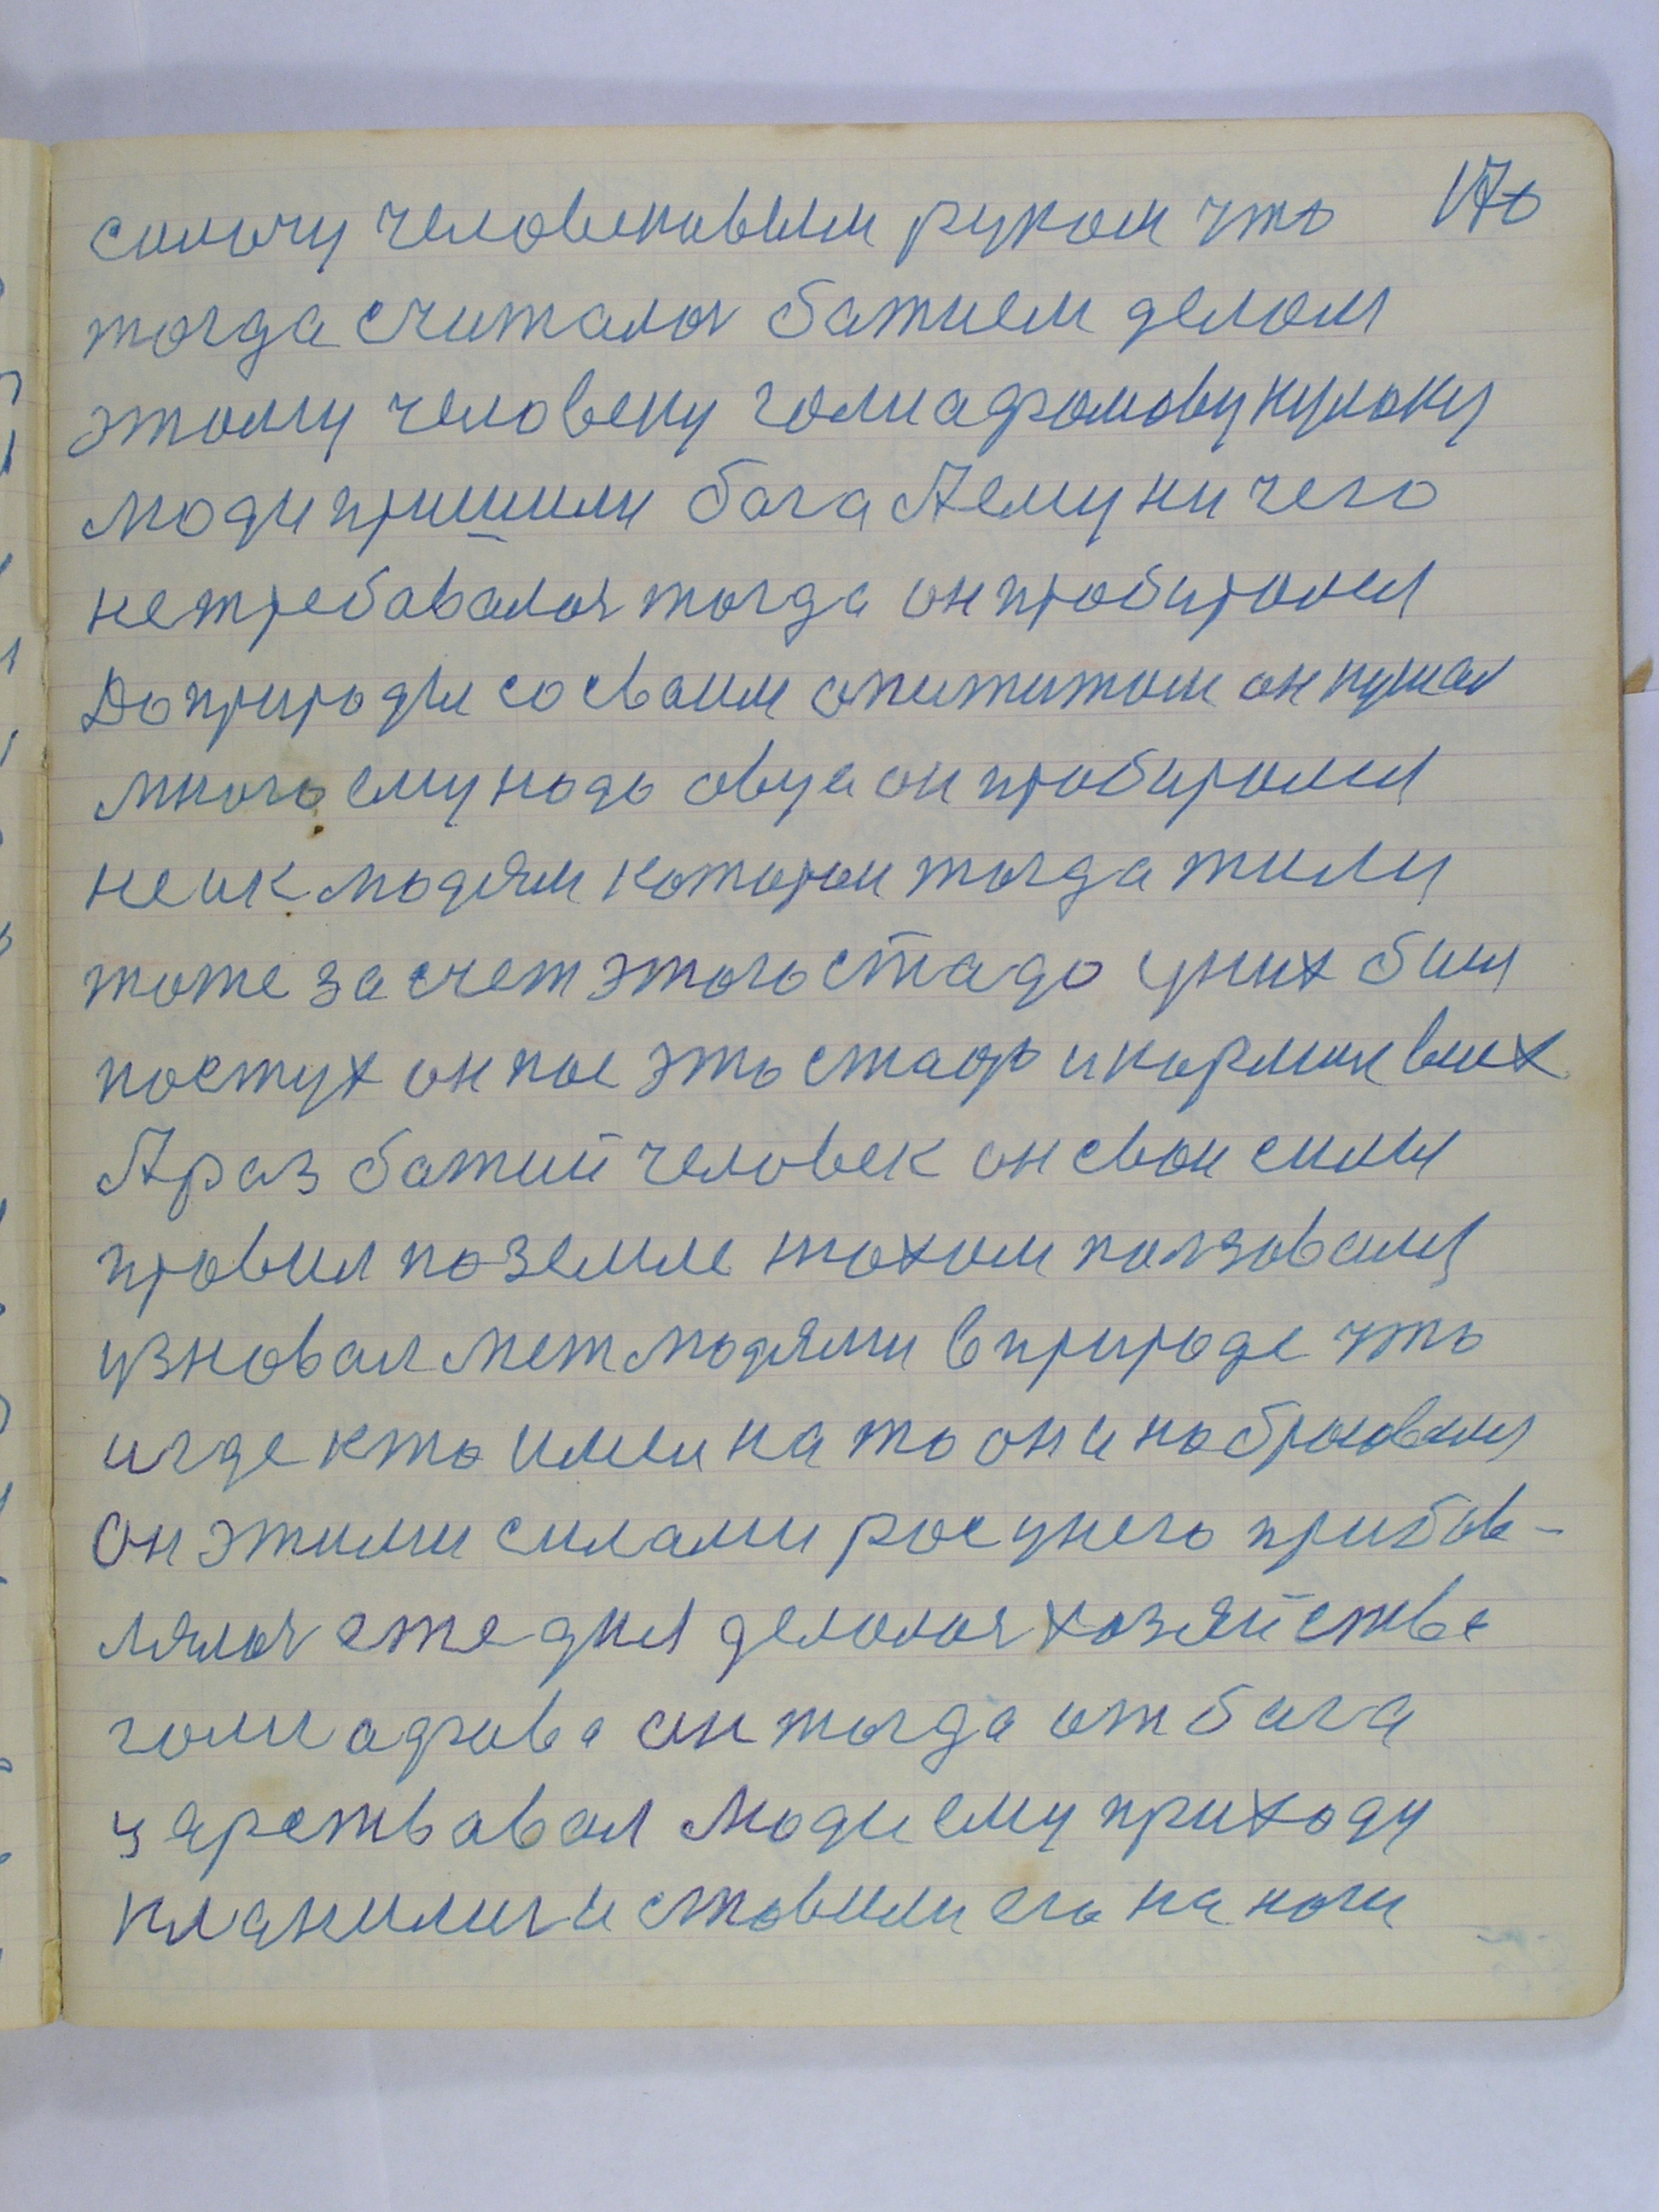 170
самому человековым руком что
тогда считалоя бажием делом
этому человеку голиафомову кулоку
люди пришили бога А ему ничего
нетребавалоя тогда он пробиролся
До природы со своим апитжтом он кушал
много ему надо овца он пробиролся
не ик людям котором тогда жили
тоже за счет этого стадо уних был
постух он пас это стадо и кормил всих
А раз бажий человек он свои силы
провил по земле таким ползовался
узновал меж людями в природе что
и где кто имеи на то он и набрасовался
Он этими силами рос унего прибов-
лялоя еже дня делолоя хозяйства
голиафова он тогда от бога
царствовал Люди ему приходу
кланились и ставили его на ноги